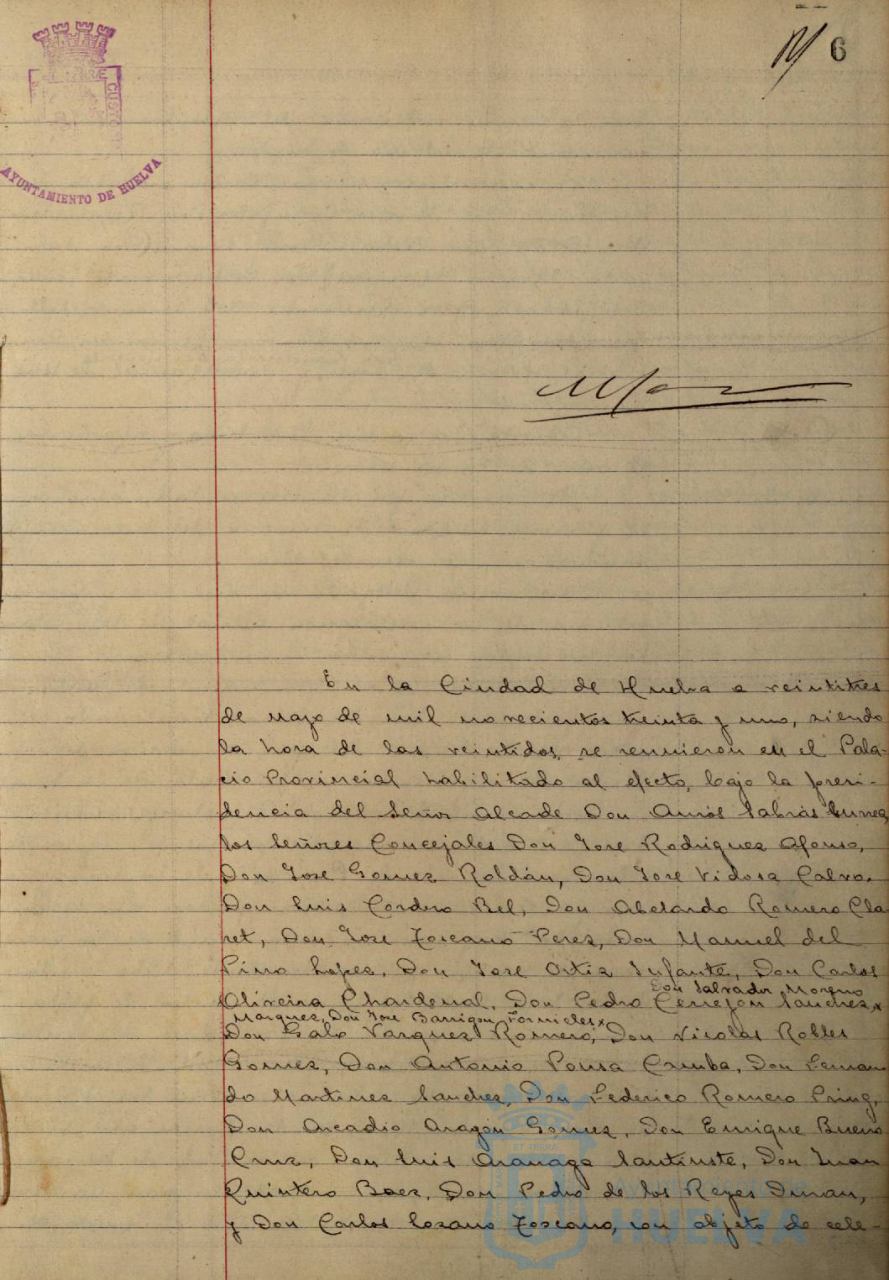 6
CUSTO
AYUNTAMIENTO DE HUELVA
En la Ciudad de Huelva a veintitres
de mayo de mil novecientos treinta y uno, siendo
la hora de las veintidos, se reunieron en el Pala-
cio Provincial habilitado al efecto, bajo la presi-
dencia del Señor Alcade Don Amós Sabrás
los Señores Concejales Don Jose Rodriguez Afonso,
Don Jose Gomez Roldán, Don Jose Vidosa Calvo.
Don Luis Cordero Bel, Don Abelardo Romero Cla
ret, Don Jose Toscano Perez, Don Manuel del
Pino Lopez, Don Jose Ortiz Infante, Don Carlos
Don Salvador Moreno
Oliveira Chardenal, Don Pedro Cerrejon Sanchez,x
Marquez, Don Jose Barrigon Fornieles x
Don Galo Vazquez Romero, Don Nicolas Robles
Gomez, Don Antonio Pousa Don Fernan
do Martinez Sanchez, Don Federico Romero Pring,
Don Arcadio Aragón Gomez, Don Enrique Bueno
Cruz, Don Luis Don Juan
Quintero Baez, Don Pedro de los Reyes Duran,
y Don Carlos Lozano Toscano, con objeto de cele-
HUELVA